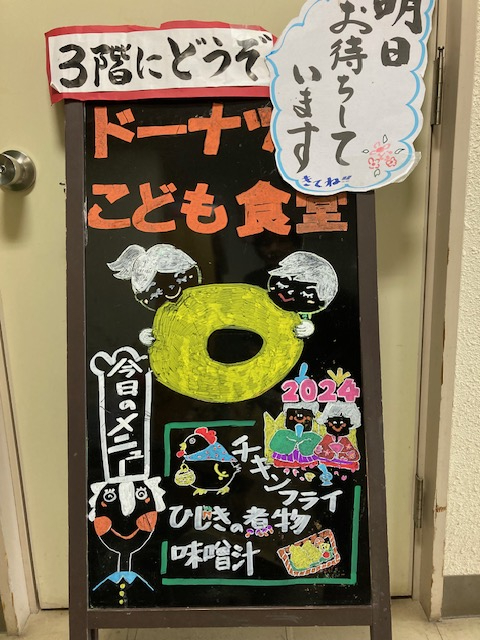 3階にどうぞ
明日
お待ちして
います
きてね
ドーナツ
こども食堂
今日のメニュー
2024
チキンフライ
ひじきの煮物
味噌汁